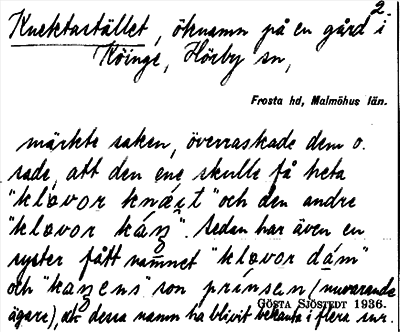 2.
Knektastället, öknamn på en gård i
Köinge, Hörby sn,
Frosta hd, Malmöhus län.
märkte saken, överraskade dem o.
sade, att den ene skulle få heta
"klǫvor knäit" och den andre
"klǫvor káŋ". Sedan har även en
syster fått namnet "klǫvor dám"
och "kaŋens" son prinsen (nuvarande
GÖSTA SJÖSTEDT 1936.
ägare), att dessa namn ha blivit bekanta i flera snr.